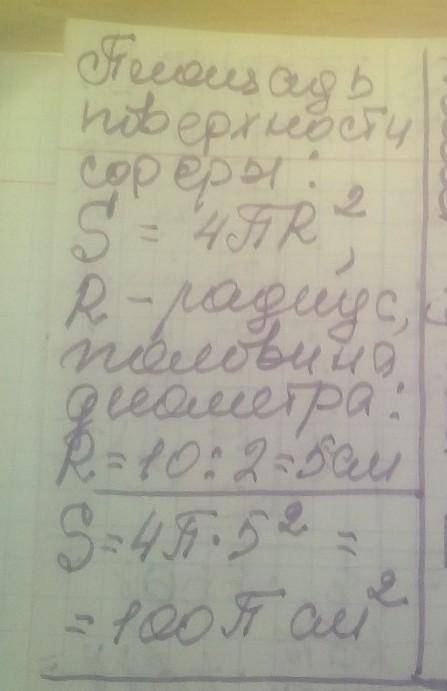 Площадь
поверхности
сферы:
S = 4ПR²,
R - радиус,
половина
диаметра:
R = 10 : 2 = 5 см
S = 4П · 5² =
= 100П см²